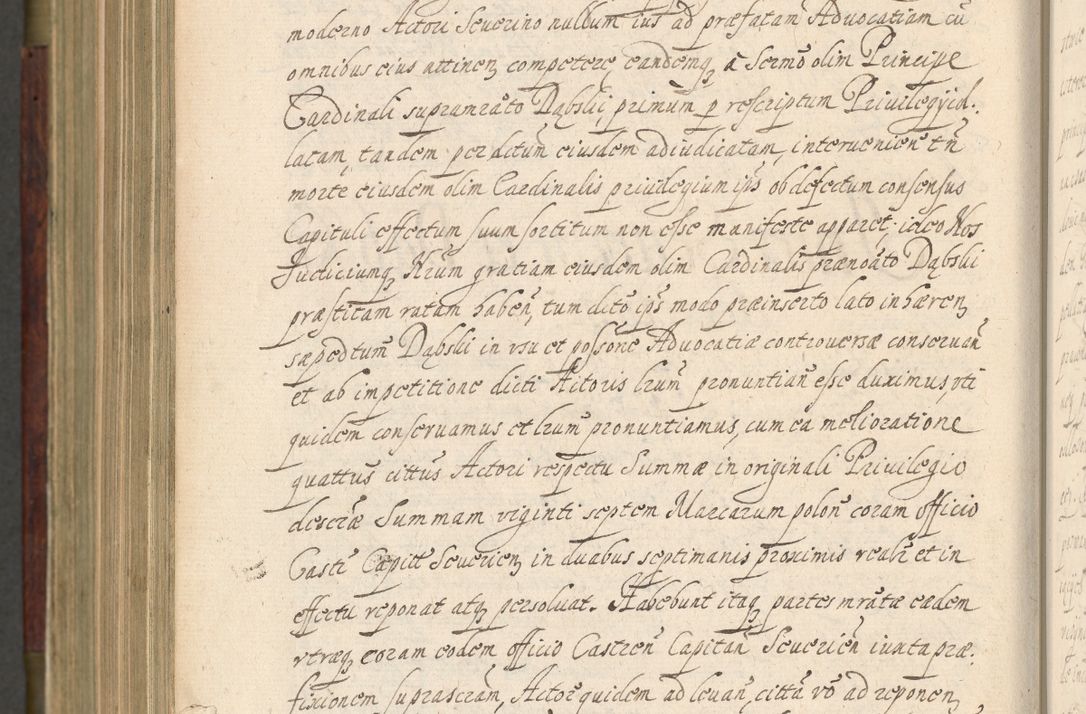 moderno Actori Seuerino nullum ius ad præfatam Aduocatiam cū
omnibus eius attinen̄ competere, eandemq̨ a Sermō olim Principe
Cardinali supramrāto Dąbskii, primum p rescriptum Priuilegÿ col:
latam, tandem per dctūm eiusdem adiudicatam, interuenien̄ tn̄
morte eiusdem olim Cardinalis priuilegium ips̄ ob defectum consensus
Capituli effectum suum sortitum non esse manifeste apparet, ideo Nos
Iudiciumq̨ Nr̄um gratiam eiusdem olim Cardinalis prænoāto Dąbskii
præstitam ratam haben̄, tum dctō ips̄ modo præinserto lato inhæren̄
sæpedctum Dąbskii in vsu et possōne Aduocatiæ controuersæ conseruan̄
et ab impetitione dicti Actoris lr̄um pronuntian̄ esse duximus, vti
quidem conseruamus et lr̄um pronuntiamus, cum ea melioratione
quattūs cittūs Actori respectu Summæ in originali Priuilegio
descr̄æ Summam viginti septem Marcarum polon̄ coram officio
Castr̄ Capitt̄ Seuerien̄ in duabus septimanis proximis realr̄ et in
effectu reponat atq̨ persoluat. Habebunt itaq̨ partes mrātæ eadem
vtræq̨ coram eodem officio Castren̄ Capitan̄ Seuerien̄ iuxta præ:
fixionem suprascr̄am, Actor quidem ad leuan̄, cittā vō ad reponen̄